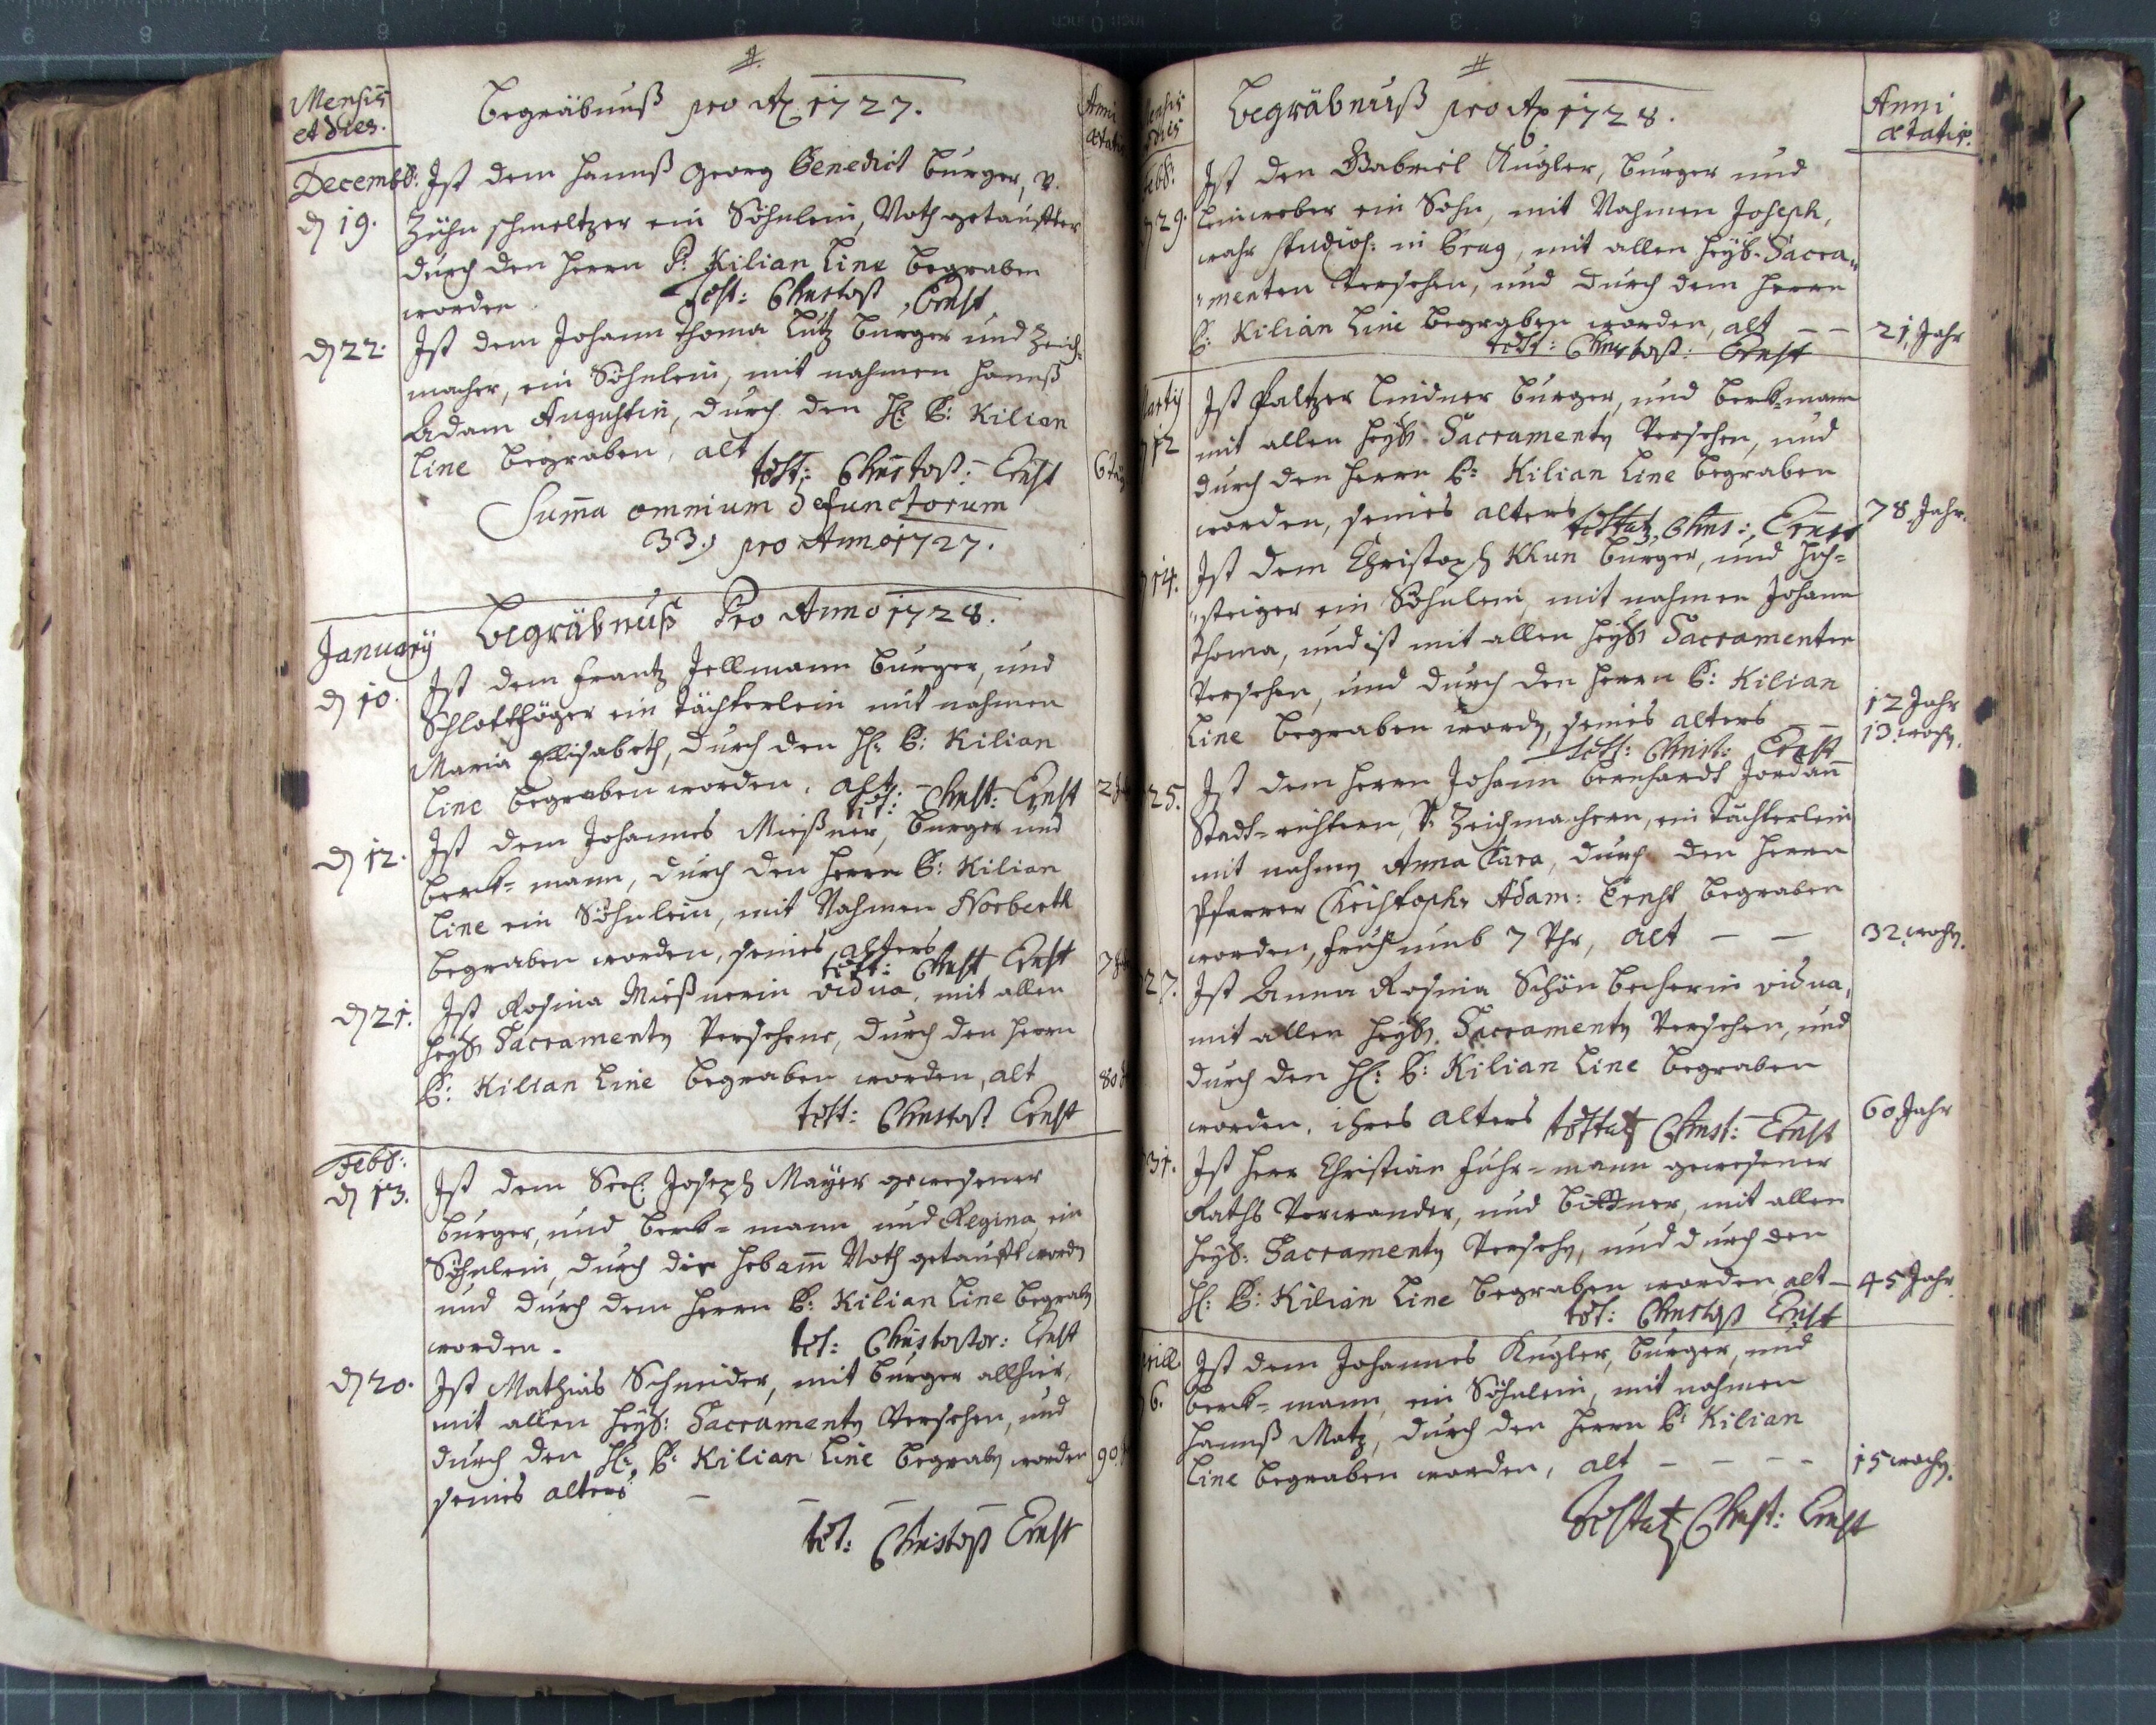 Mensis
et dies.
Begräbnuß pro Ao 1727.
Anni
ætatis
Decembr:
d 19.
Ist dem Hannß Georg Benedict burger, v.
Zühn schmeltzer ein Söhnlein, Noth getauffter
durch den Herrn P: Kilian Line begraben
worden.
Test: Christoff Ernst
d 22.
Ist dem Johann Thoma Lutz burger und Zeich=
macher, ein Söhnlein, mit nahmen Hannß
Adam Augustin, durch den H: P: Kilian
Line begraben, alt
6 tag
test: Christoff: Ernst
Suma omnium defunctorum
33., pro Anno 1727.
Begräbnuß Pro Anno 1728.
Januarÿ
d 10.
Ist dem Frantz Jellmann burger, und
ein tächterlein mit nahmen
Maria Elisabeth, durch den H: P: Kilian
Line begraben worden, alt.
test: Christ: Ernst
d 12.
Ist dem Johannes Mießner, burger und
berk=mann, durch den Herrn P: Kilian
Line ein Söhnlein, mit Nahmen Norberth
begraben worden, seines alters
test: Christ Ernst
d 21.
Ist Rosina Mießnerin vidua, mit allen
heyl. Sacramenten Versehene, durch den Herrn
P: Kilian Line begraben worden, alt
80
test: Christoff Ernst
Febr:
d 13.
Ist dem Seel. Joseph Mayer gewesener
burger, und berk=mann und Regina ein
Söhnlein, durch die hebam Noth getaufft worden
und durch dem Herrn P: Kilian Line begraben
worden.
tes: Christoffor: Ernst
d 20.
Ist Mathias Schneider, mit burger allhier,
mit allen heyl: Sacramenten Versehen, und
durch den H: P: Kilian Line begraben worden
90.
seines alters
tes: Christoff Ernst
ensis
dies
Begräbnuß pro Ao 1728.
Anni
ætatis.
ebr:
d 29.
Ist den Gabriel Kugler, burger und
Leinweber ein Sohn, mit Nahmen Joseph,
wahr studios: in Prag, mit allen heyl. Sacra„
„menten Versehen, und durch dem Herrn
P: Kilian Line begraben worden, alt – –
21, Jahr
test: Christoff: Ernst
artij
12
Ist Paltzer Lindner burger, und berk=mann
mit allen heyl. Sacramenten Versehen, und
durch den Herrn P: Kilian Line begraben
worden, seines alters
78 Jahr.
testatur, Chris: Ernst
14.
Ist dem Christoph Khun burger, und
„steiger ein Söhnlein, mit nahmen Johann
Thoma, und ist mit allen heyl. Sacramenten
Versehen, und durch den Herrn P: Kilian
Line begraben worden, seines alters – –
12 Jahr
13. wochen.
test: Christ: Ernst
25.
Ist dem Herrn Johann bernhardt Jordan
Stadt=richtern, v: Zeichmachern, ein tächterlein
mit nahmen Anna Clara, durch den Herrn
Pfarrer Christoph: Adam: Ernst begraben
worden, fruh umb 7 Uhr, alt – –
32. wochen.
27.
Ist Anna Rosina Schön becherin vidua,
mit allen heyl. Sacramenten Versehen, und
durch den H: P: Kilian Line begraben
worden, ihres alters
60 Jahr
testatur Christ: Ernst
31.
Ist Herr Christian Fuhr=mann gewesener
Raths Verwander, und bittner, mit allen
heyl: Sacramenten Versehen, und durch den
H: P: Kilian Line begraben worden, alt –
45 Jahr.
tes: Christoff Ernst
prill.
6.
Ist dem Johannes Kugler, burger, und
berk=mann, ein Söhnlein, mit nahmen
Hannß Matz, durch den Herrn P: Kilian
Line begraben worden, alt – – – –
15 wochen.
Testatur Christ: Ernst